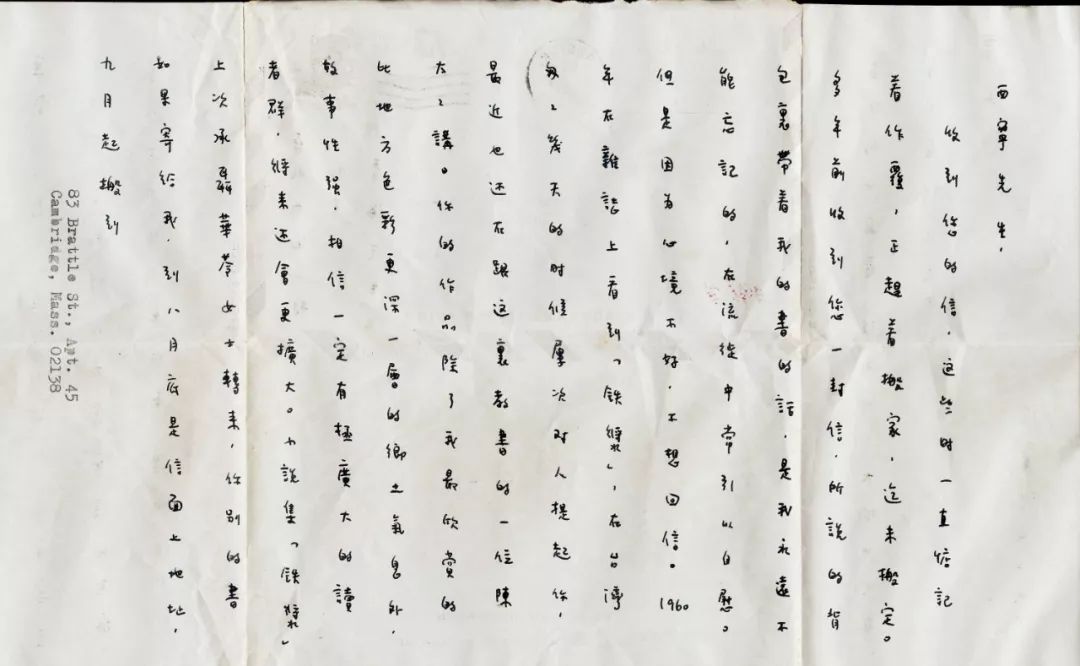 西寧先生,
收到您的信,这些时一直惦记
着作覆,正趕着搬家,迄未搬定。
多年前收到您一封信,所說的背
包裏带着我的書的話,是我永遠不
能忘記的,在流徙中常引以自慰。
但是因为心境不好,不想回信。1960
年在雜誌上看到「鉄漿」,在台灣
匆匆幾天的时候屢次对人提起你,
最近也还在跟这裏教書的一位陳
太太講。你的作品除了我最欣賞的
比地方色彩更深一層的鄉土氣息外,
故事性强,相信一定有極廣大的讀
者群,将来还會更擴大。小說集「鉄漿」
上次承聶華苓女士轉来,你别的書
如果寄給我,到八月底是信面上地址,
九月起搬到
83 Brattle St., Apt. 45
Cambridge, Mass. 02138